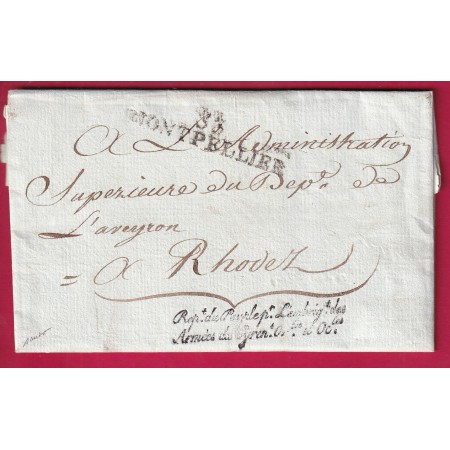 33
MONTPELLIER
A L'Administration
Superieure du Dep.t de
L'aveyron
= a Rhodez
Rep.t du Peuple p.r
Armées des Pyren. Or.les et Oc.les